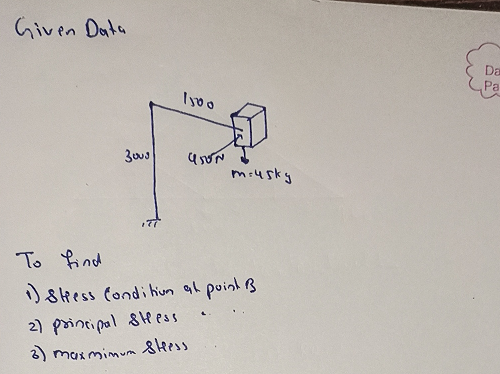 Given Data
Da
Pa
1500
3000
450N
m=45kg
To find
1) Stess Condition at point B
2) principal stess
3) maxmimum stess